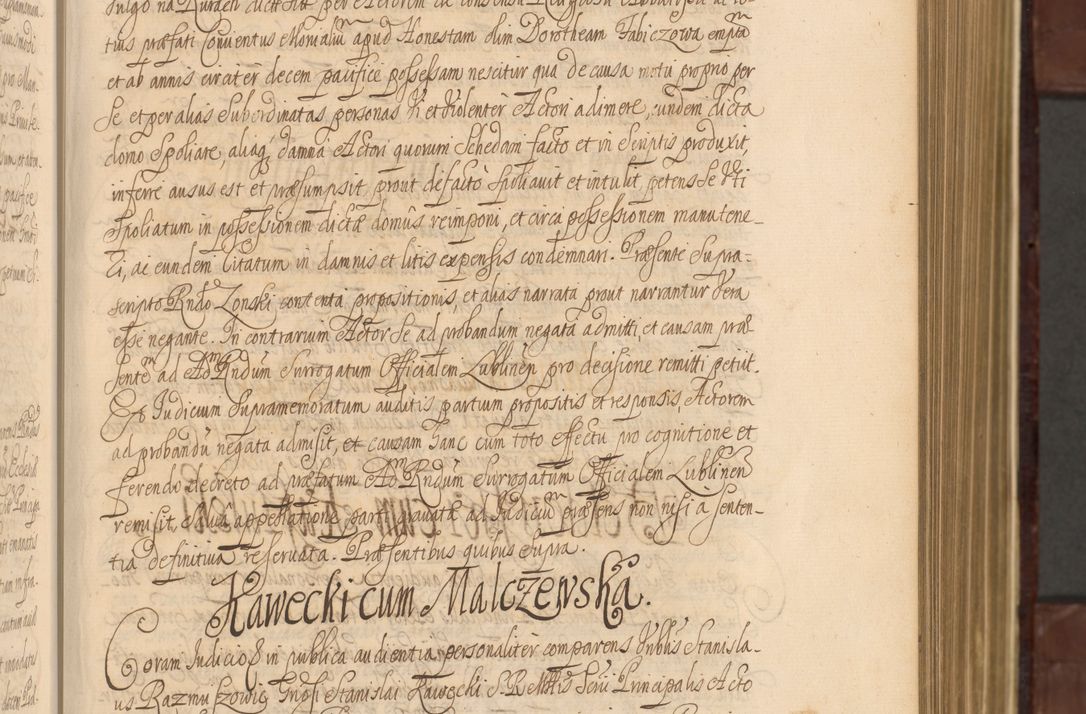 tius præfati Conventus Monialiũ apud Honestam olim Dorotheam Fabiczowa emptã
et ab annis circiter decem pacifice possessam nescitur qua de causa motu proprio per
se et per alias subordinatas personas vi et violenter Actori adimere, eundem dicta
domo spoliare, aliaq̃ damna Actori quorum schedam facto et in scriptis produxit,
inferre ausus est et præsumpsit, prout de facto spoliavit et intulit, petens se uti
spoliatum in possessionem dictæ domûs reimponi, et circa possessionem manutene-
ri, ac eundem Citatum in damnis et litis expensis condemnari. Præsente supra-
scripto Rndo Zonski contenta propositionis, et alias narrata prout narrantur vera
esse negante. In contrarium Actor se ad probandum negata admitti, et causam præ-
sentẽ ad Adm Rndum Surrogatum Officialem Lublineñ pro decisione remitti petiit.
Et Iudicium supramemoratum auditis partium propositis et responsis, Actorem
ad probandũ negata admisit, et causam hanc cum toto effectu pro cognitione et
ferendo decreto ad præfatum Adm Rndum Surrogatum Officialem Lublineñ
remisit, salva appellatione parti gravatæ ad Iudiciũ præsens non nisi a senten-
tia definitiva reservata. Præsentibus quibus supra.
Kawecki cum Malczewska.
Coram Iudicio &c in publica audientia personaliter comparens Nobilis Stanisla-
us Razmuszowic Gnosi Stanislai Kawecki S. R. Mttis Principalis Acto